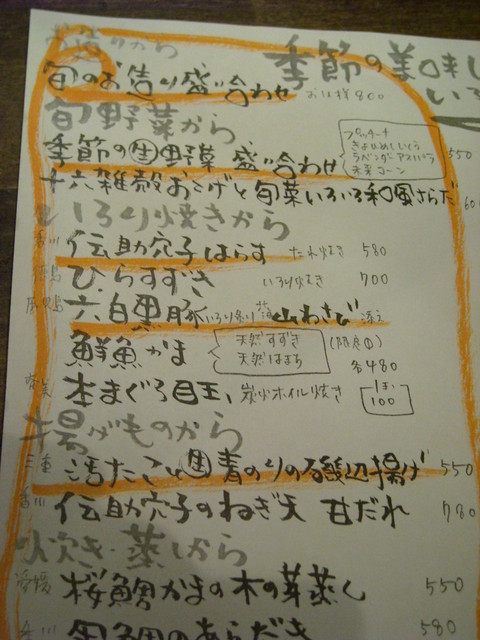 季節の美味し
いろ
お造りから
旬のお造り盛り合わせ お一人様 800
旬野菜から
季節の生野菜盛り合わせ 550
十六雑穀おこげと旬菜いろいろ和風さらだ 60
いろり焼きから
香川 伝助穴子はらす たれ焼き 580
ひらすずき いろり焼き 700
六白黒豚 いろり炙り 山わさび 添え
鮮魚かま 天然すずき 天然はまち (限定①) 各480
本まぐろ目玉 炭火ホイル焼き 1ヶ 100
揚げものから
三重 活たこと生青のりの磯辺揚げ 550
香川 伝助穴子のねぎ天 甘だれ 780
炊き・蒸しから
愛媛 桜鯛かまの木の芽蒸し 550
のあらだき 580